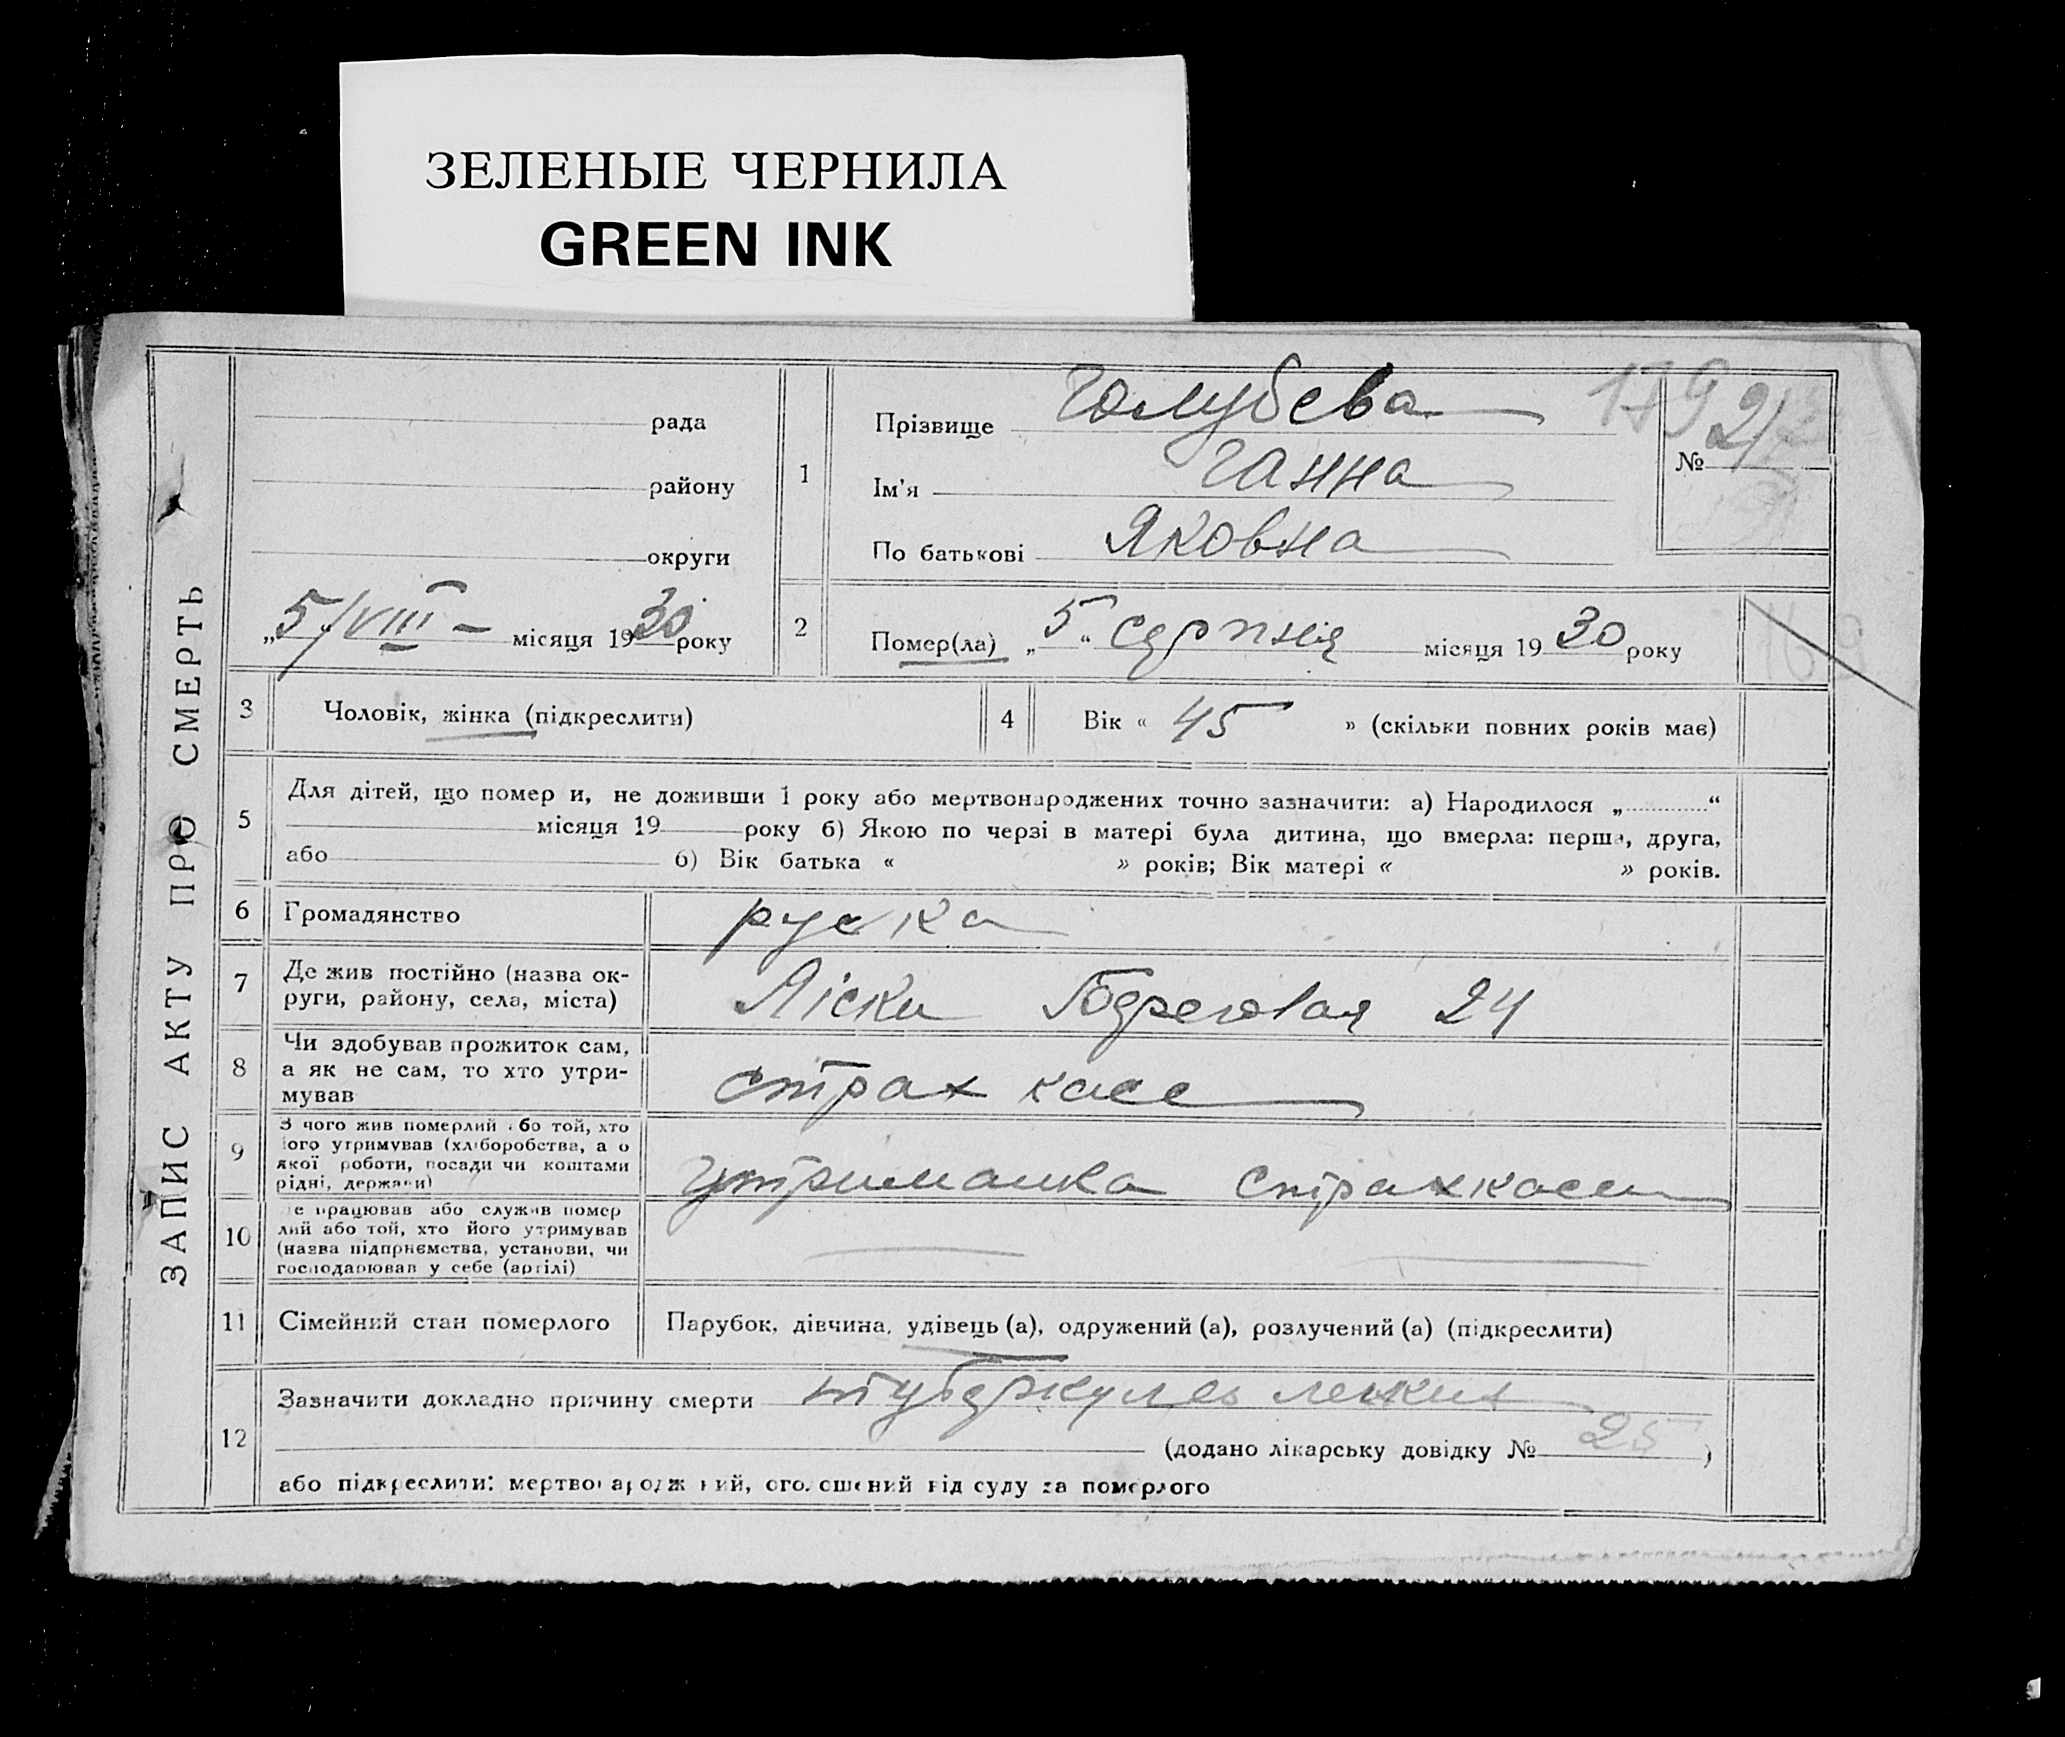 ЗЕЛЕНЫЕ ЧЕРНИЛА
GREEN INK
ЗАПИС АКТУ ПРО СМЕРТЬ
рада
району
округи
„5/VIII – місяця 1930 року
1
Прізвище Голубева
Ім'я Ганна
По батькові Яковна
179
№ 21
2
Помер(ла) „5“ серпня місяця 1930 року
3 Чоловік, жінка (підкреслити)
4 Вік « 45 » (скільки повних років має)
5
Для дітей, що помер и, не доживши 1 року або мертвонароджених точно зазначити: а) Народилося „ “
місяця 19 року б) Якою по черзі в матері була дитина, що вмерла: перша, друга,
або б) Вік батька « » років; Вік матері « » років.
6 Громадянство руска
7 Де жив постійно (назва ок-
руги, району, села, міста)
Ліски 24
8 Чи здобував прожиток сам,
а як не сам, то хто утри-
мував
страх касс
9 З чого жив померлий або той, хто
його утримував (хліборобства, а о
якої роботи, посади чи коштами
рідні, держави)
Утриманка страхкаси
10 Де працював або служив помер
лий або той, хто його утримував
(назва підприємства, установи, чи
господарював у себе (артілі)
11 Сімейний стан померлого Парубок, дівчина, удівець (а), одружений (а), розлучений (а) (підкреслити)
12
Зазначити докладно причину смерти туберкулез легких
(додано лікарську довідку № 25 )
або підкреслити: мертвонароджений, оголошений від суду за померлого